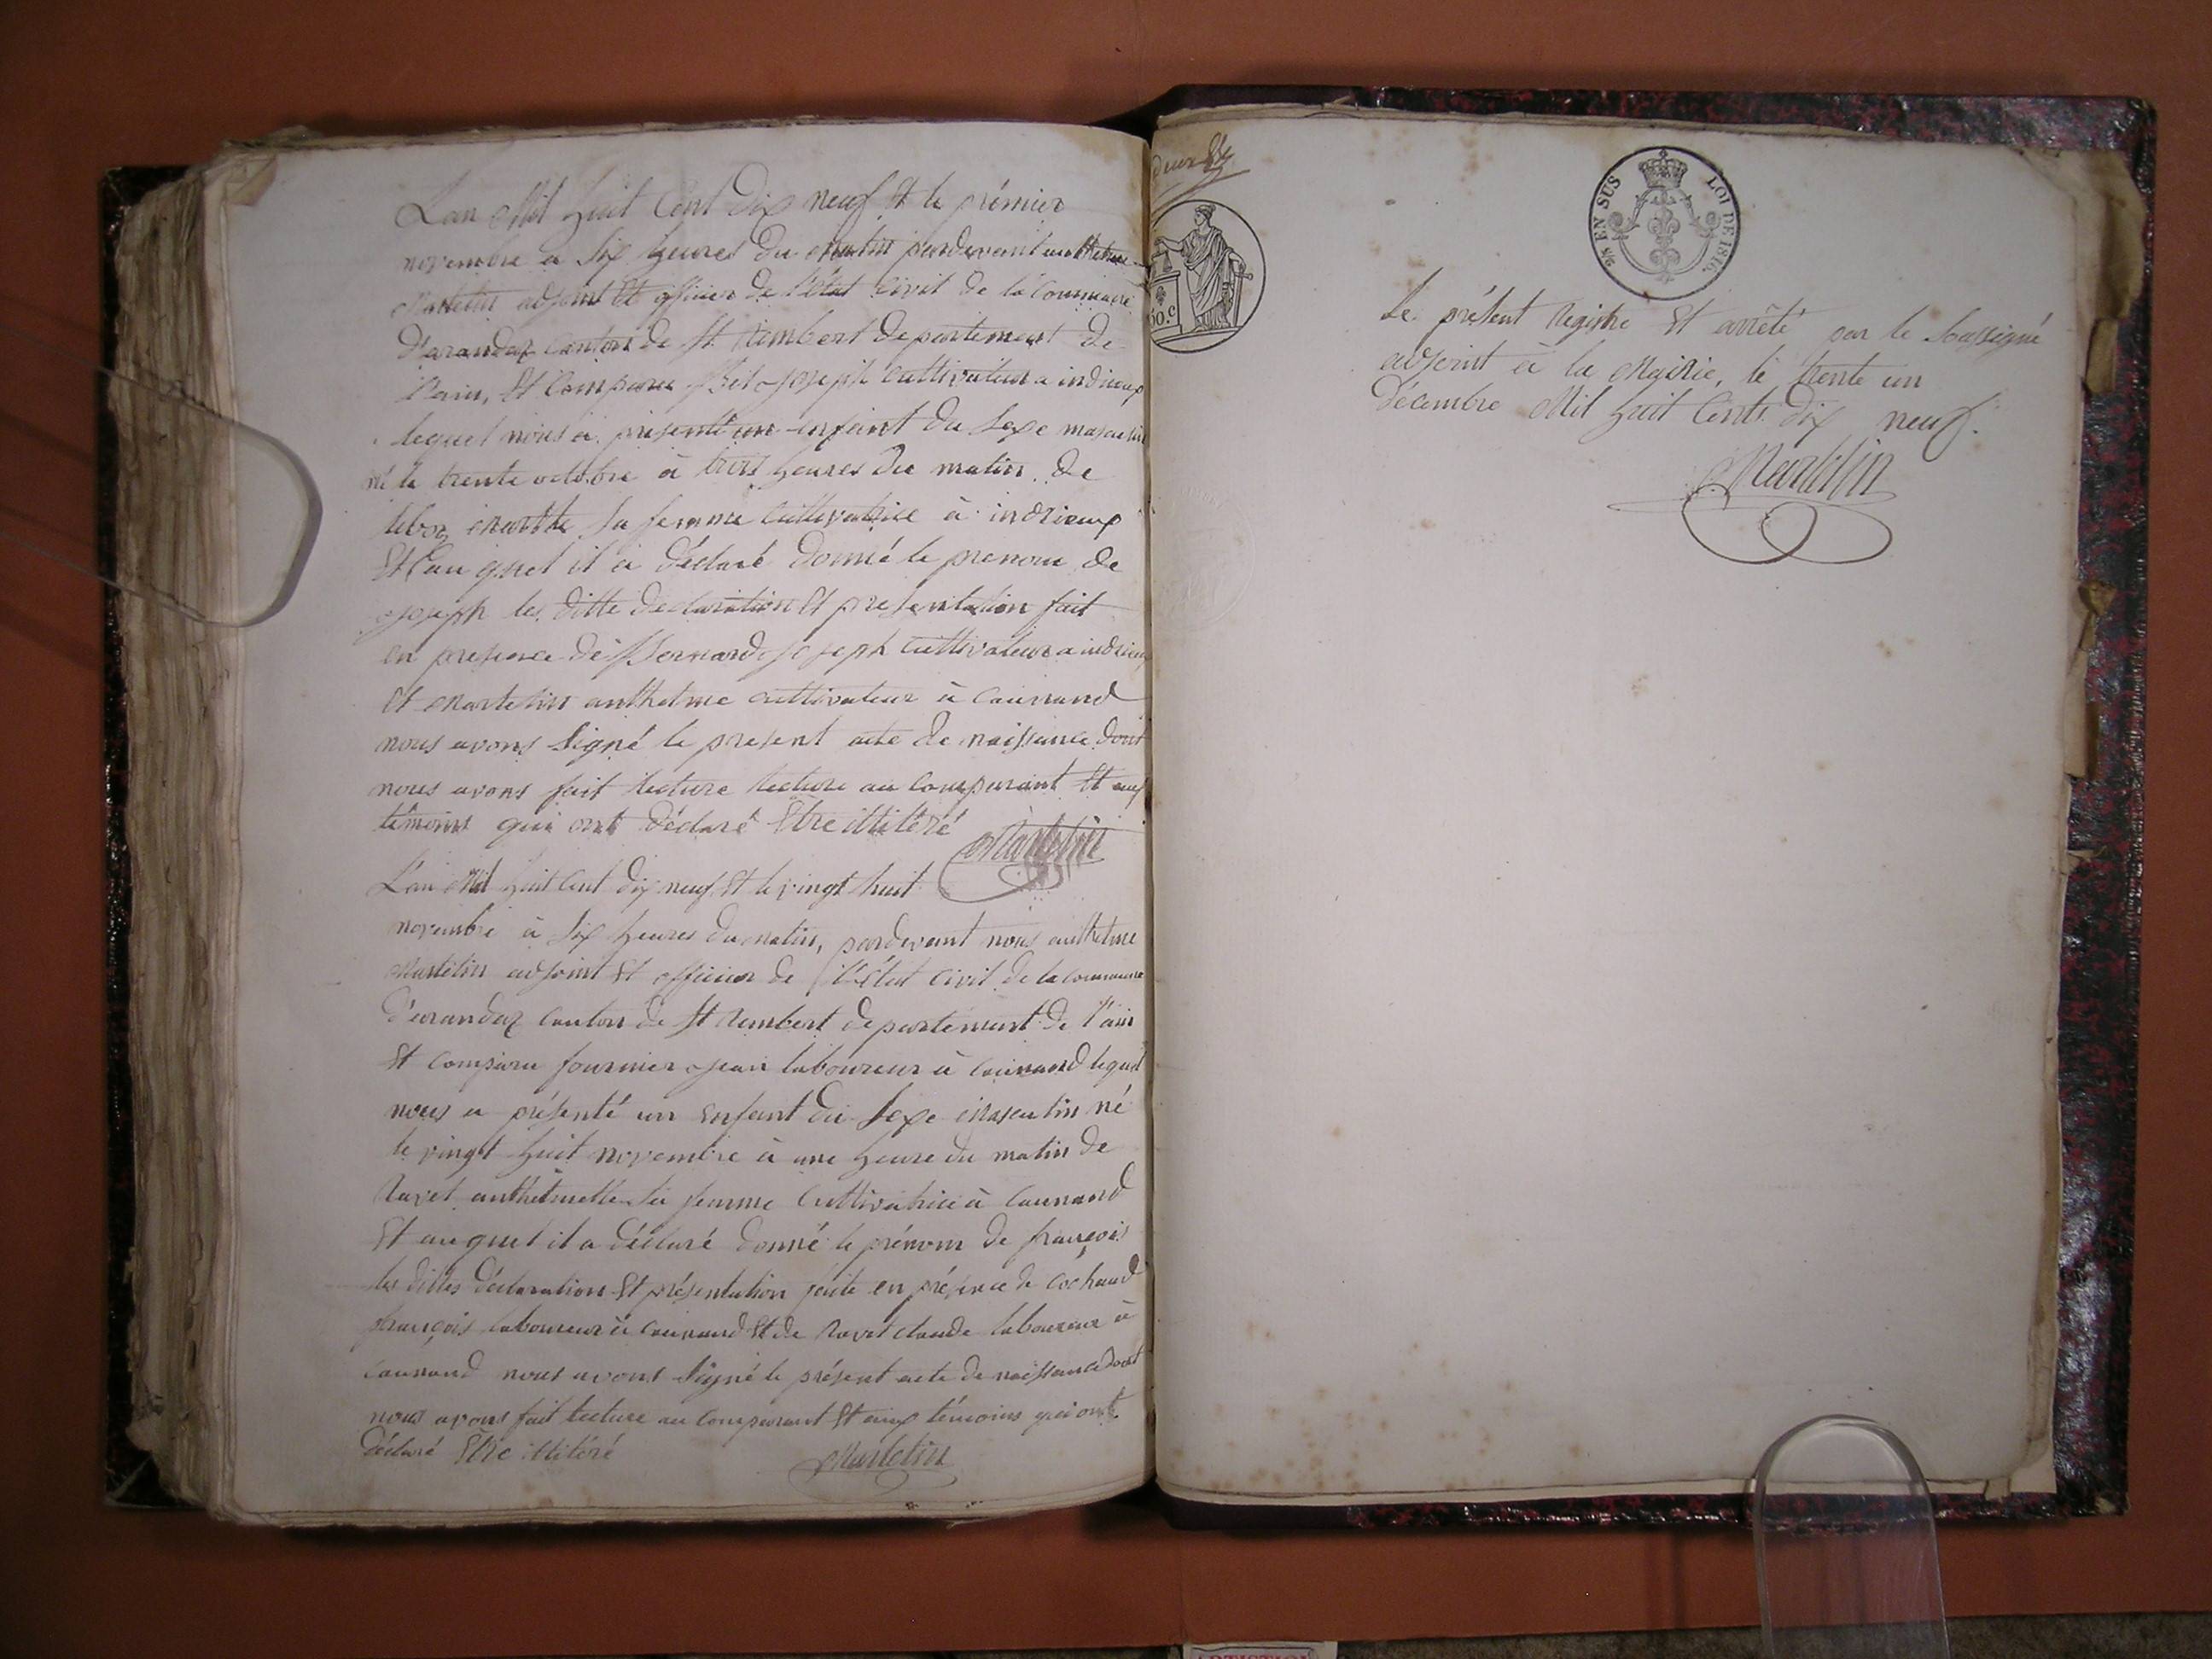 L'an Mil huit Cent Dix neuf Et le prémier
novembre a Six heures du Matin pardevant anthelme
Martelin adjoint Et officier de l'état Civil de la Commune
D'arandaz Canton de St Rembert departement de
l'ain, Et Comparu Joseph Cultivateur a indrieux
lequel nous a présenté un enfant du Sexe masculin
né le trente octobre à trois heures du matin de
Sa femme Cultivatrice à indrieux
Et au quel il a déclaré donné le prenom de
joseph les ditte declaration Et presentation fait
en presence de Bernard joseph Cultivateur a indrieux
Et Martelin anthelme cultivateur à Caunand
nous avons Signé le present acte de naissance dont
nous avons fait lecture lecture au Comparant Et aux
témoins qui ont déclaré Etre illitéré
Martelin
L'an Mil huit Cent dix neuf Et le vingt huit
novembre à Six heures du matin, pardevant nous anthelme
Martelin adjoint Et officier de l'état Civil de la Commune
d'arandaz Canton de St Rembert departement de l'ain
Et Comparu fournier Jean laboureur à Caunand lequel
nous a présenté un Enfant du Sexe Masculin né
le vingt huit novembre à une heure du matin de
Ravet anthelmette Sa femme Cultivatrice à Caunand
Et au quel il a déclaré donné le prénom de françois
les dittes déclaration Et présentation faite en présence de Cochand
françois laboureur à Caunand Et de Ravet claude laboureur à
Caunand nous avons Signé le présent acte de naissance dont
nous avons fait lecture au Comparant Et aux témoins qui ont
déclaré Etre illitéré
Martelin
deux
50.c
EN SUS
LOI DE 1816.
Le présent Registre Et arrêté par le Soussigné
adjoint à la Mairie, le trente un
décembre Mil huit Cents dix neuf.
Martelin